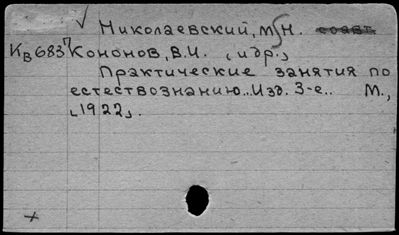 Николаевский, М.Н. соавт.
Кв683 Кононов, В.И. (и др.)
Практические занятия по
естествознанию.. Изд. 3-е.. М.,
[1922].